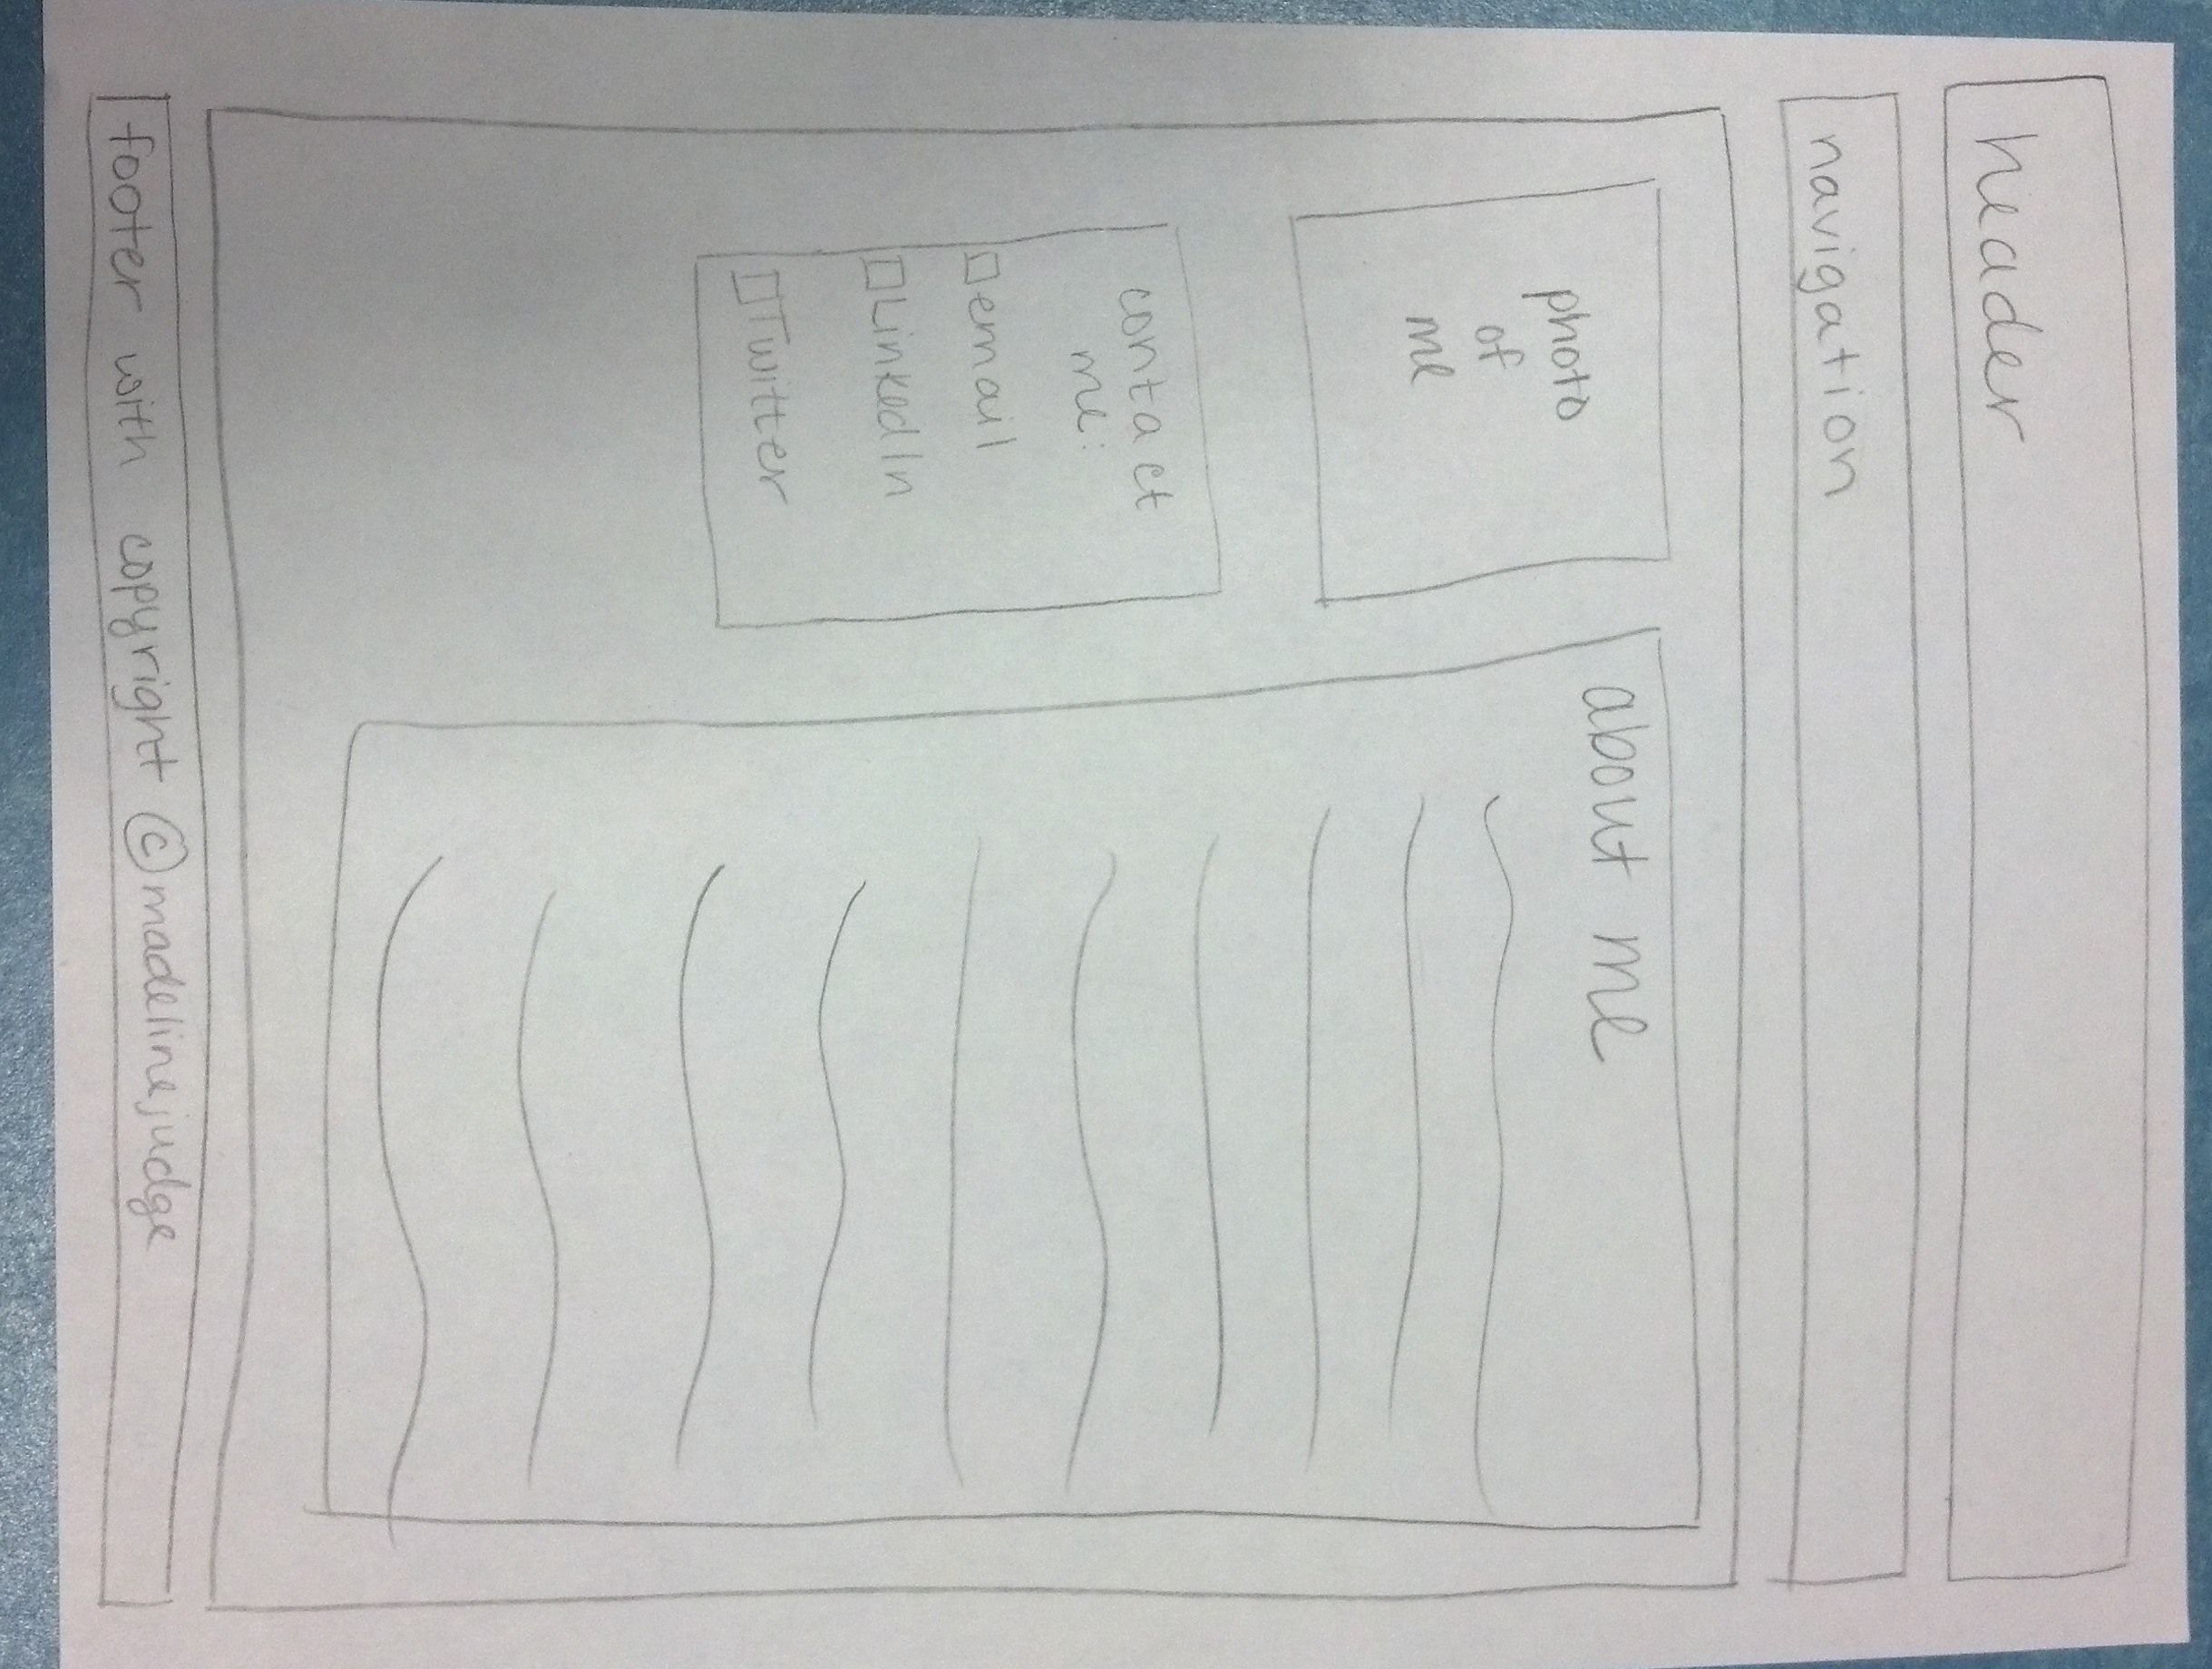 header
navigation
photo
of
me
contact
me:
email
LinkedIn
Twitter
about me
footer with copyright ©madelinejudge